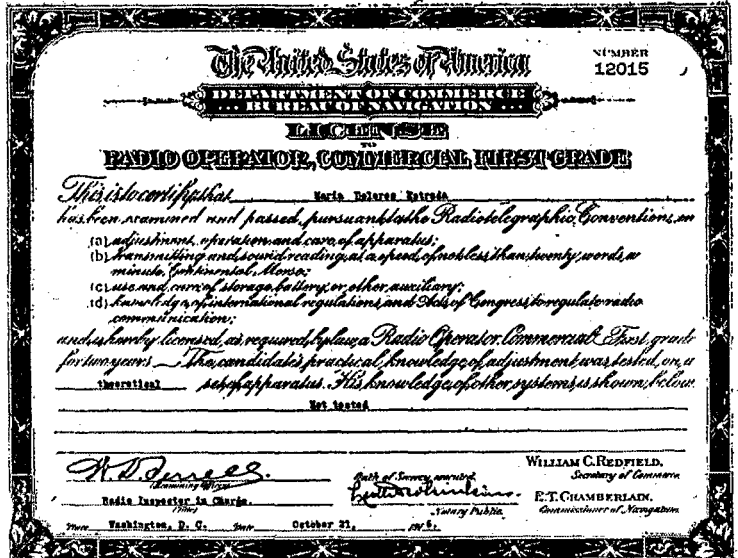 The United States of America
NUMBER
12015
DEPARTMENT OF COMMERCE
BUREAU OF NAVIGATION
LICENSE
TO
RADIO OPERATOR, COMMERCIAL FIRST GRADE
This is to certify that Maria Dolores Estrada
has been examined and passed, pursuant to the Radiotelegraphic Convention, on
(a) adjustment, operation and care of apparatus;
(b) transmitting and sound reading at a speed of not less than twenty words a
minute, Continental Morse;
(c) use and care of storage battery or other auxiliary;
(d) knowledge of international regulations and Acts of Congress to regulate radio
communication;
and is hereby licensed, as required by law, a Radio Operator, Commercial First grade
for two years. The candidate's practical knowledge of adjustment was tested on a
theoretical set of apparatus. His knowledge of other systems is shown below.
Not tested
Examining Officer
Oath of Secrecy executed
WILLIAM C. REDFIELD,
Secretary of Commerce
Radio Inspector in Charge.
Notary Public.
E. T. CHAMBERLAIN,
Commissioner of Navigation
Place Washington, D. C. Date October 21, 1916.